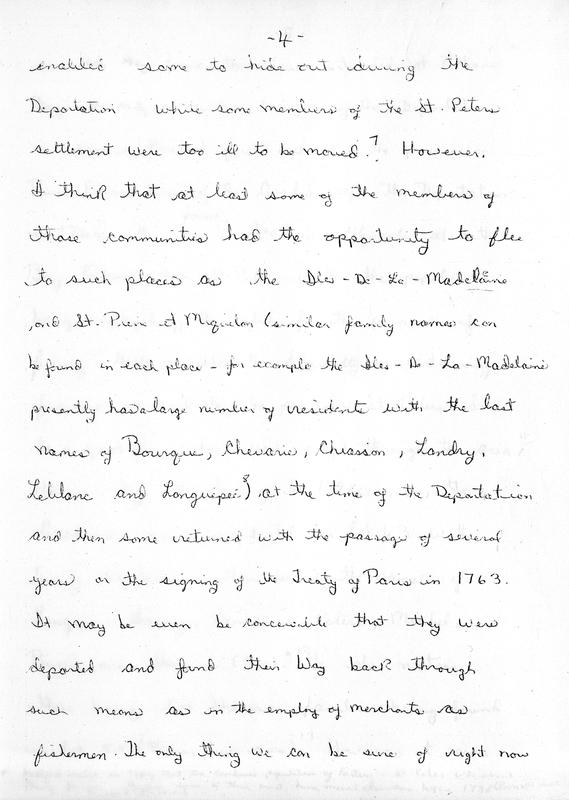 -4-
enabled some to hide out during the
Deportation while some members of the St. Peters
settlement were too ill to be moved.7 However,
I think that at least some of the members of
those communities had the opportunity to flee
to such places as the Iles-De-La-Madelaine
and St. Pierre et Miquelon (similar family names can
be found in each place - for example the Iles-De-La-Madelaine
presently has a large number of residents with the last
names of Bourque, Chevarie, Chiasson, Landry,
Leblanc and Longuépeé8) at the time of the Deportation
and then some returned with the passage of several
years or the signing of the Treaty of Paris in 1763.
It may be even be conceivable that they were
deported and found their way back through
such means as in the employ of merchants as
fishermen. The only thing we can be sure of right now